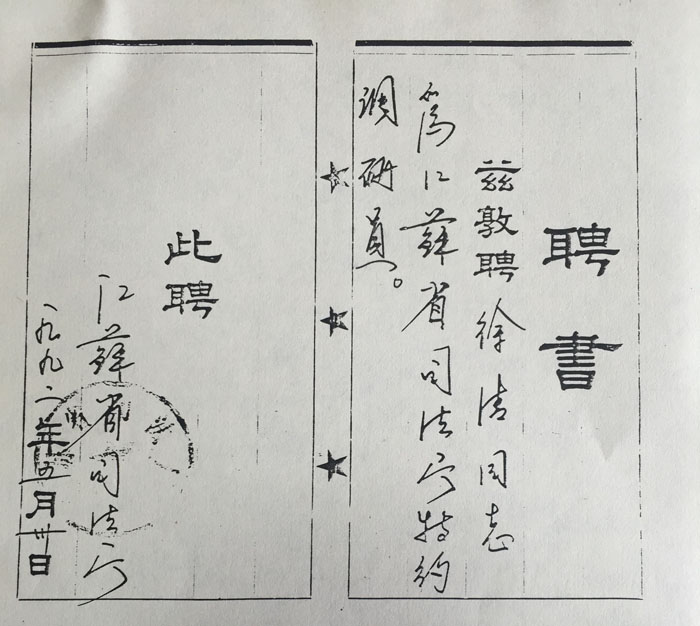 聘書
兹敦聘徐清同志
為江蘇省司法厅特约
调研員。
此聘
江蘇省司法厅
一九九二年五月卅日